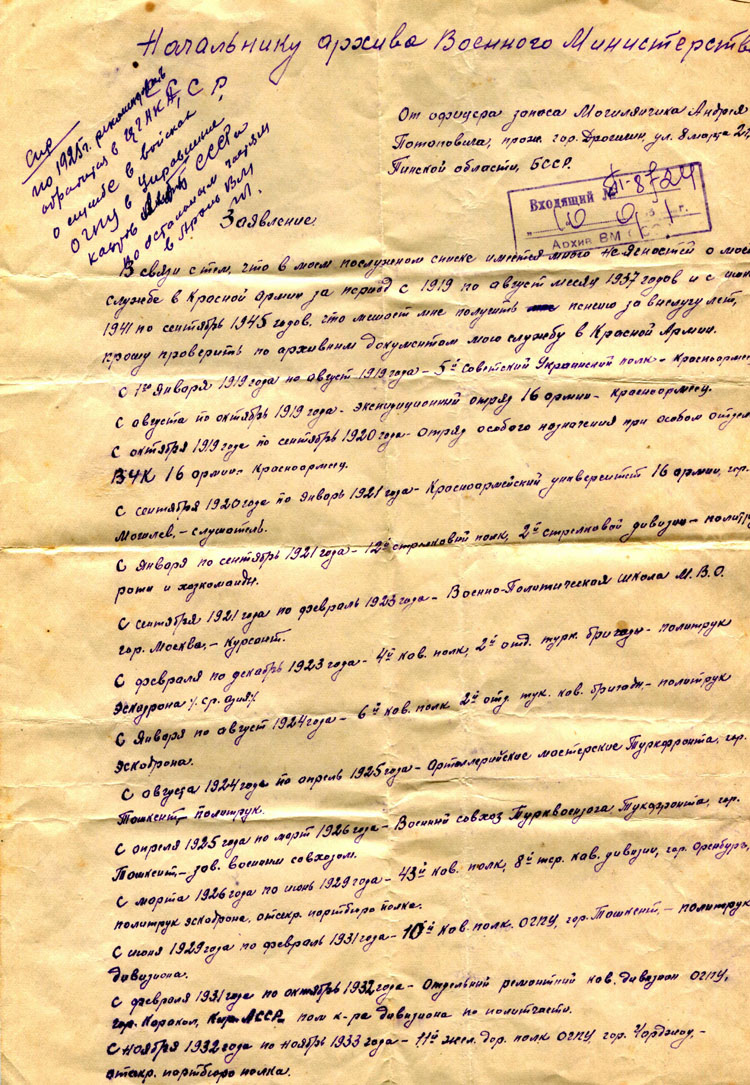 Начальнику архива Военного Министерств
СССР,
От офицера запаса Могилянчика Андрея
Потаповича, прож. гор. Дрогичин, ул. 8 марта 2
Пинской области, БССР.
по 1925 г. рекомендовать
обратиться в ЦГАКА,
о службе в войсках
ОГПУ в Управление
кадров СССР и
по остальным частям
в Архив ВМ
Входящий №
Архив ВМ
Заявление.
В связи с тем, что в моем послужном списке имеется много неясностей о мое
службе в Красной Армии за период с 1919 по август месяц 1937 годов и с июн
1941 по сентябрь 1945 годов, что мешает мне получить пенсию за выслугу лет,
прошу проверить по архивным документам мою службу в Красной Армии.
С 1го Января 1919 года по август 1919 года – 5й Советский Украинский полк – красноарме
С августа по октябрь 1919 года – экспидиционный отряд 16 армии – красноармеец.
С октября 1919 года по сентябрь 1920 года – отряд особого назначения при особом отдел
ВЧК 16 армии – красноармеец.
С сентября 1920 года по январь 1921 года – Красноармейский университет 16 армии, гор.
Могилев, – слушатель.
С Января по сентябрь 1921 года – 12й стрелковый полк, 2й стрелковой дивизии – политру
роты и хозкоманды.
С сентября 1921 года по февраль 1923 года – Военно-Политическая школа М.В.О.
гор. Москва, – Курсант.
С февраля по декабрь 1923 года – 4й кав. полк, 2й отд. турк. бригады – политрук
эскадрона /. ср. азия/.
С Января по август 1924 года – 6й кав. полк 2й отд. тук. кав. бригады – политрук
эскадрона.
С августа 1924 года по апрель 1925 года – Артиллерийские мастерские Туркфронта, гор.
Ташкент, – политрук.
С апреля 1925 года по март 1926 года – Военный совхоз Турквоенхоза Тукфронта, гор.
Ташкент, – зав. военым совхозом.
С марта 1926 года по июнь 1929 года – 43й кав. полк, 8й тер. кав. дивизии, гор. Оренбург,
политрук эскадрона, отсекр. партбюро полка.
С июня 1929 года по февраль 1931 года – 10й кав. полк. ОГПУ, гор. Ташкент, – политрук
дивизиона.
С февраля 1931 года по октябрь 1932 года – Отдельный ремонтный кав. дивизион ОГПУ,
гор. Каракол, Кир. АССР. пом к-ра дивизиона по политчасти.
С ноября 1932 года по ноябрь 1933 года – 11й жел. дор. полк ОГПУ гор. Чарджоу, –
отсекр. партбюро полка.